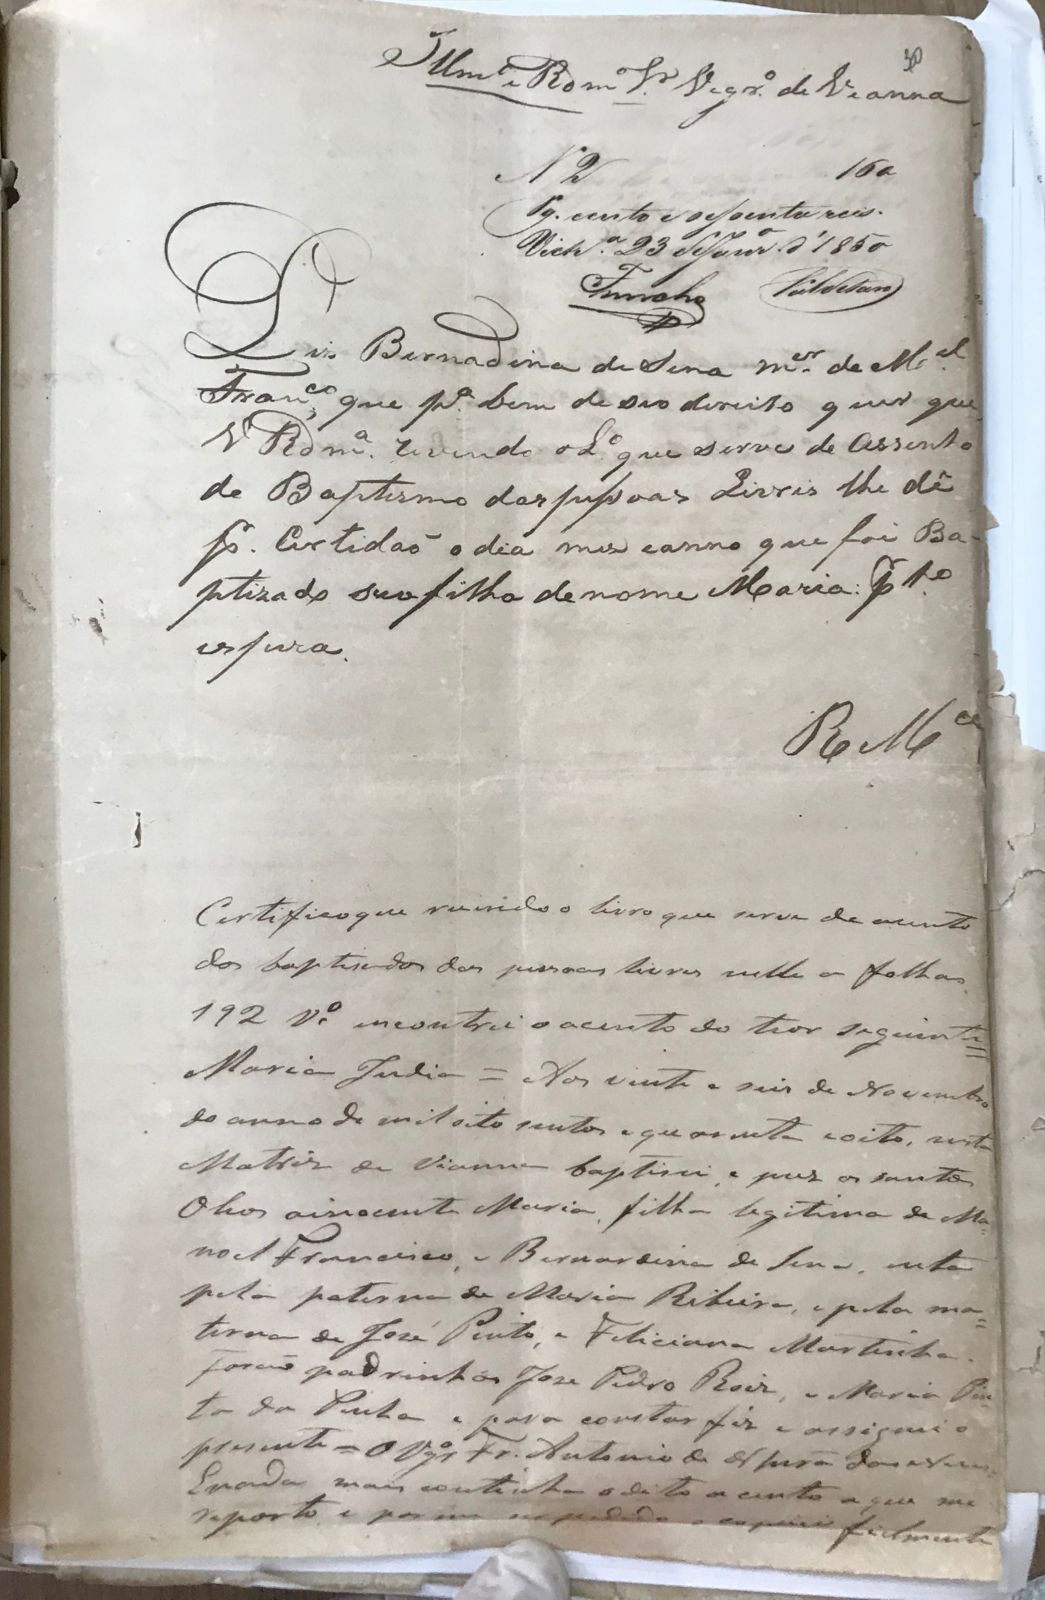 30
Illmº e Rdmº Sr. Vigrº de Vianna
Nº 2 160
Pg. cento e sessenta reis.
Victª 23 de Janrº d' 1850
Diz Bernadina de Sena mer. de Mel.
Francº, que pª bem de seo direito quer que
V Rdmª. revendo o Lº que serve de Assento
de Baptismo das pessoas Livris lhe dê
p. Certidaõ o dia mez e anno que foi Ba-
ptizado sua filha de nome Maria: p tº
espera.
R Mce
Certifico que revendo o livro que serve de acento
dos baptisados das pessoas livres nelle a folhas
192 Vº encontrei o acento do teor seguinte=
Maria India = Aos vinte e seis de Novembro
do anno de mil oito sentos e quarenta e oito, nesta
Matriz de Vianna baptisei, e puz os santos
Olhos a inocente Maria, filha legitima de Ma=
noel Francisco, e Bernardina de Sena, neta
pela paterna de Maria Ribeira, e pela ma=
terna de José Pinto, e Feliciana Martinha.
Foraõ padrinhos Jose Pedro Roiz, e Maria Pin
ta da Penha e para constar fiz e assignei o
presente = O Vgrº Fr. Antonio de
Enada mais continha o dito acento a que me
reporto e por me ser pedido o copiei fielmente